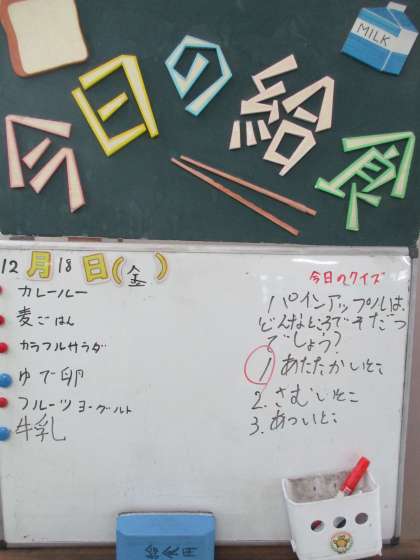 今日の給食
MILK
12月18日(金)
カレールー
麦ごはん
カラフルサラダ
ゆで卵
フルーツヨーグルト
牛乳
今日のクイズ
パインアップルは、
どんなところでそだつ
でしょう?
1. あたたかいとこ
2. さむいとこ
3. あついとこ